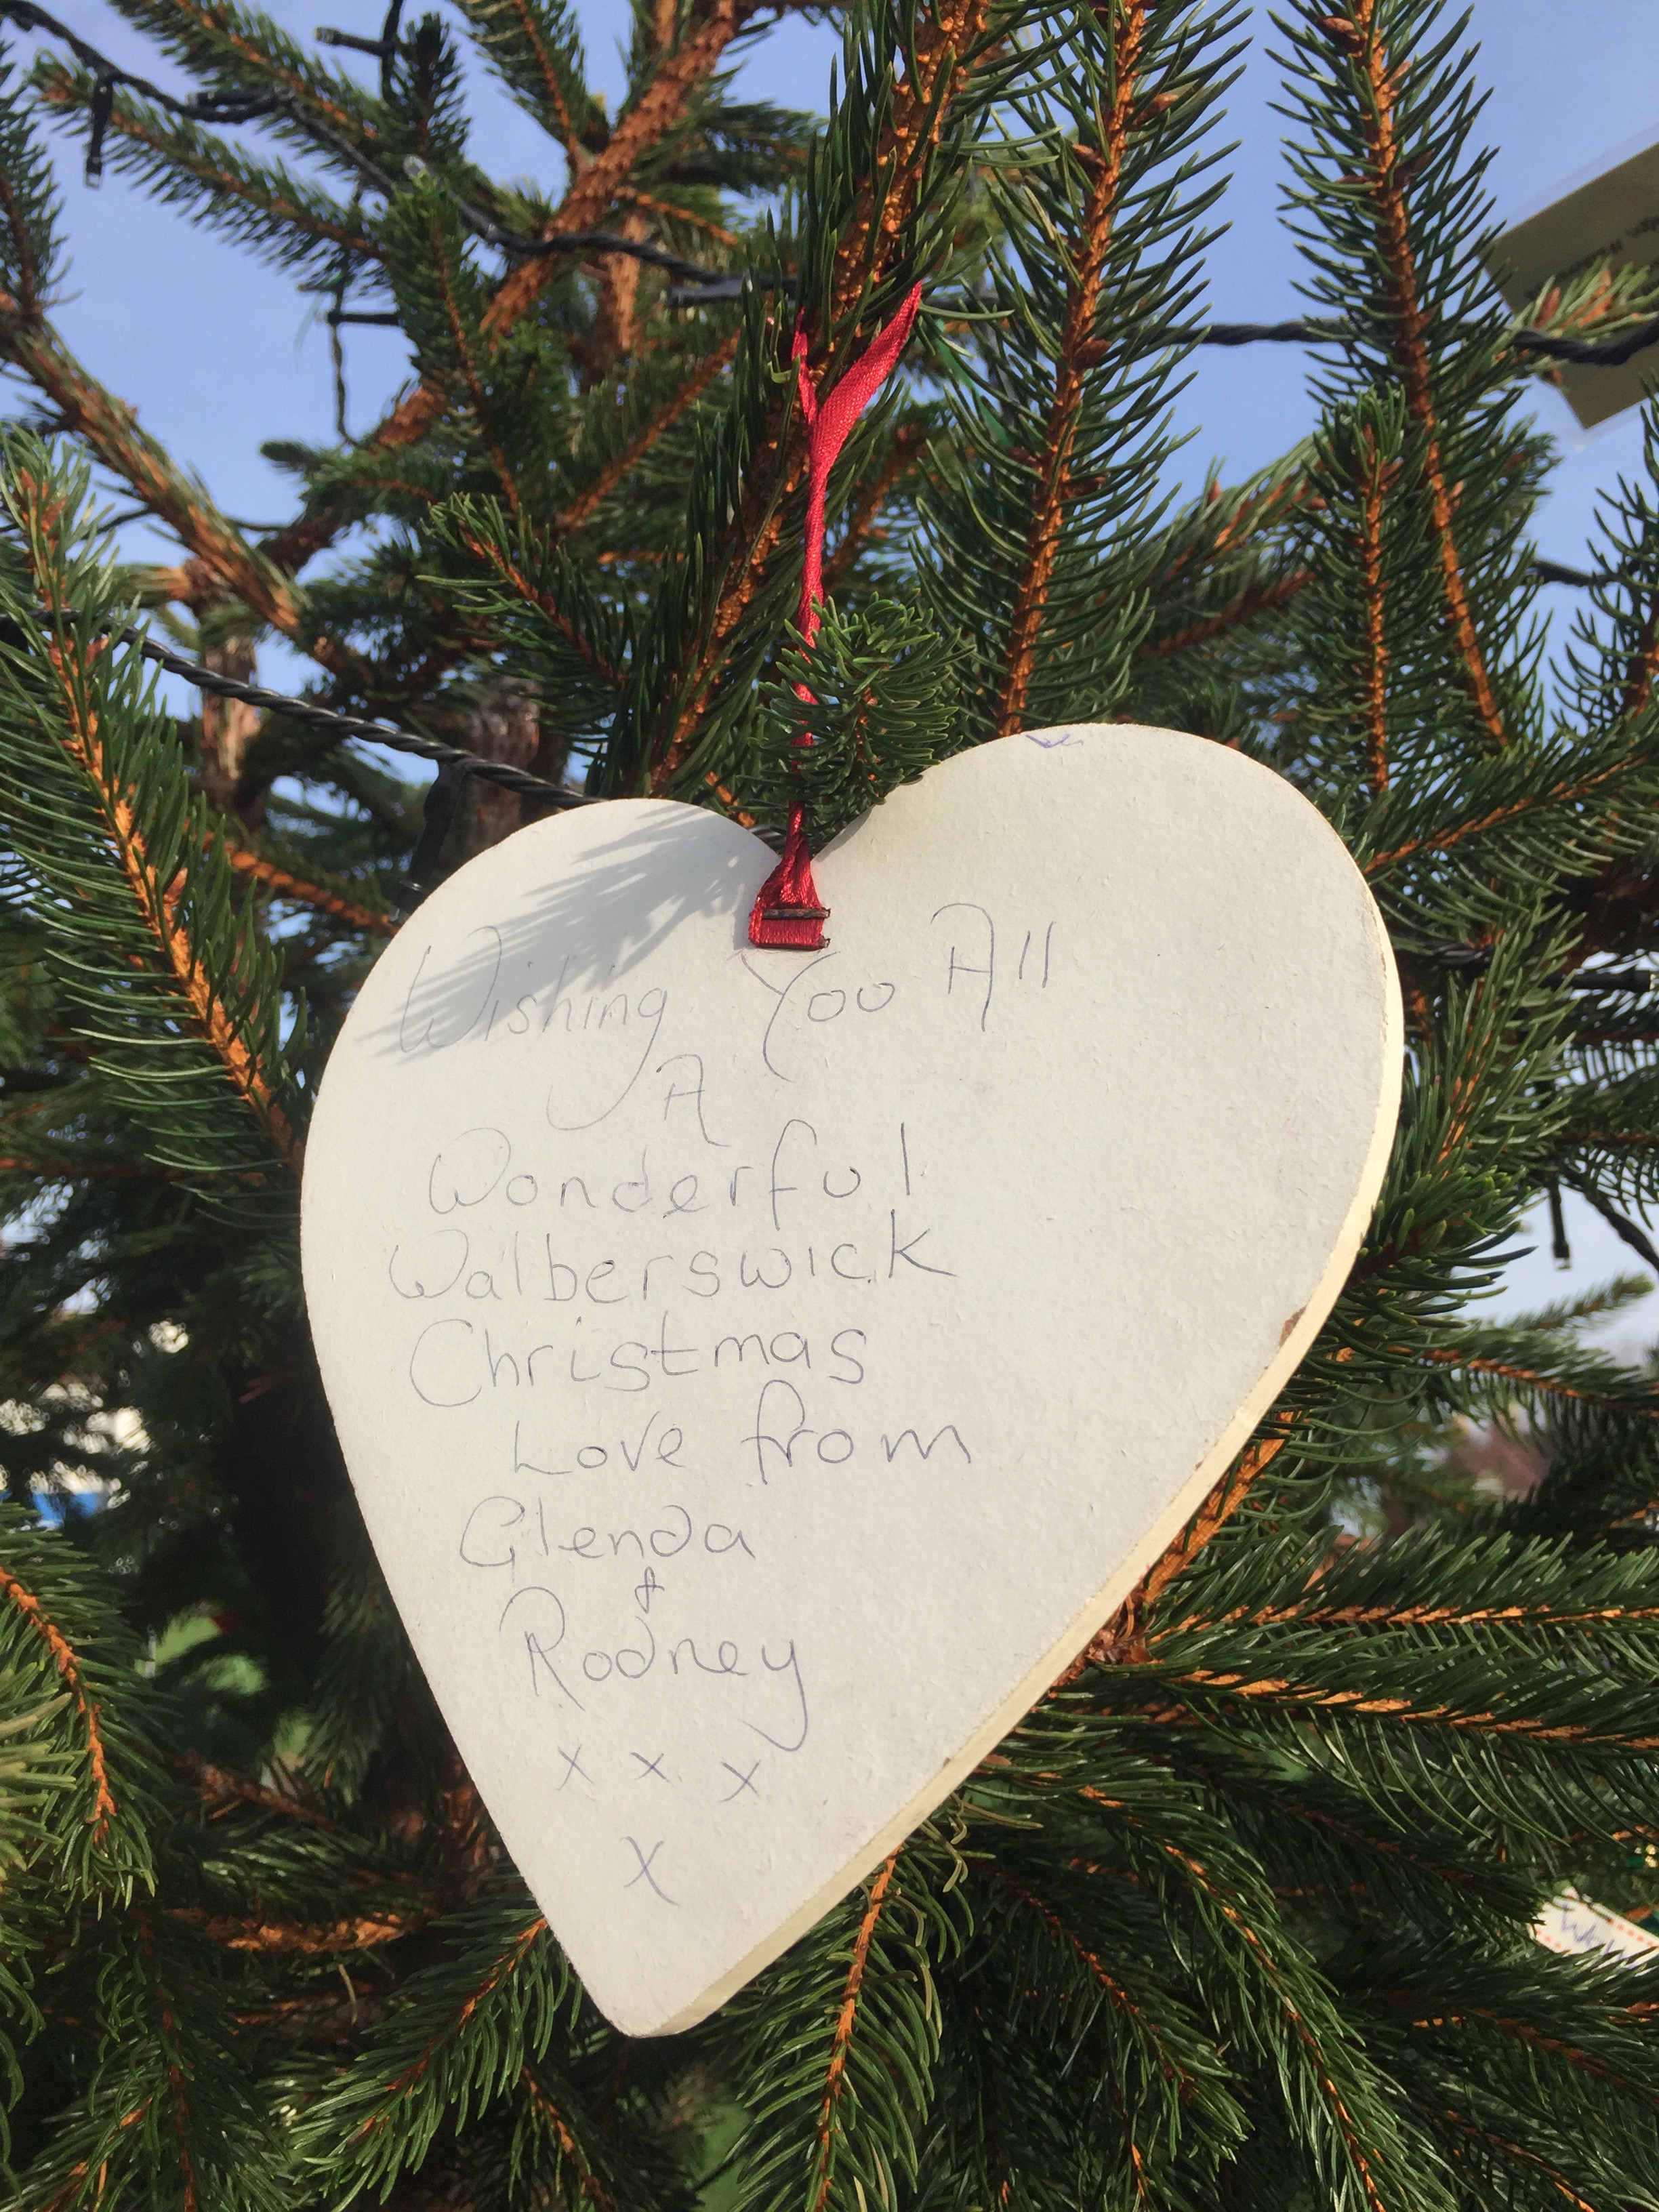 Wishing You All
A
Wonderful
Walberswick
Christmas
Love from
Glenda
&
Rodney
x x x
X